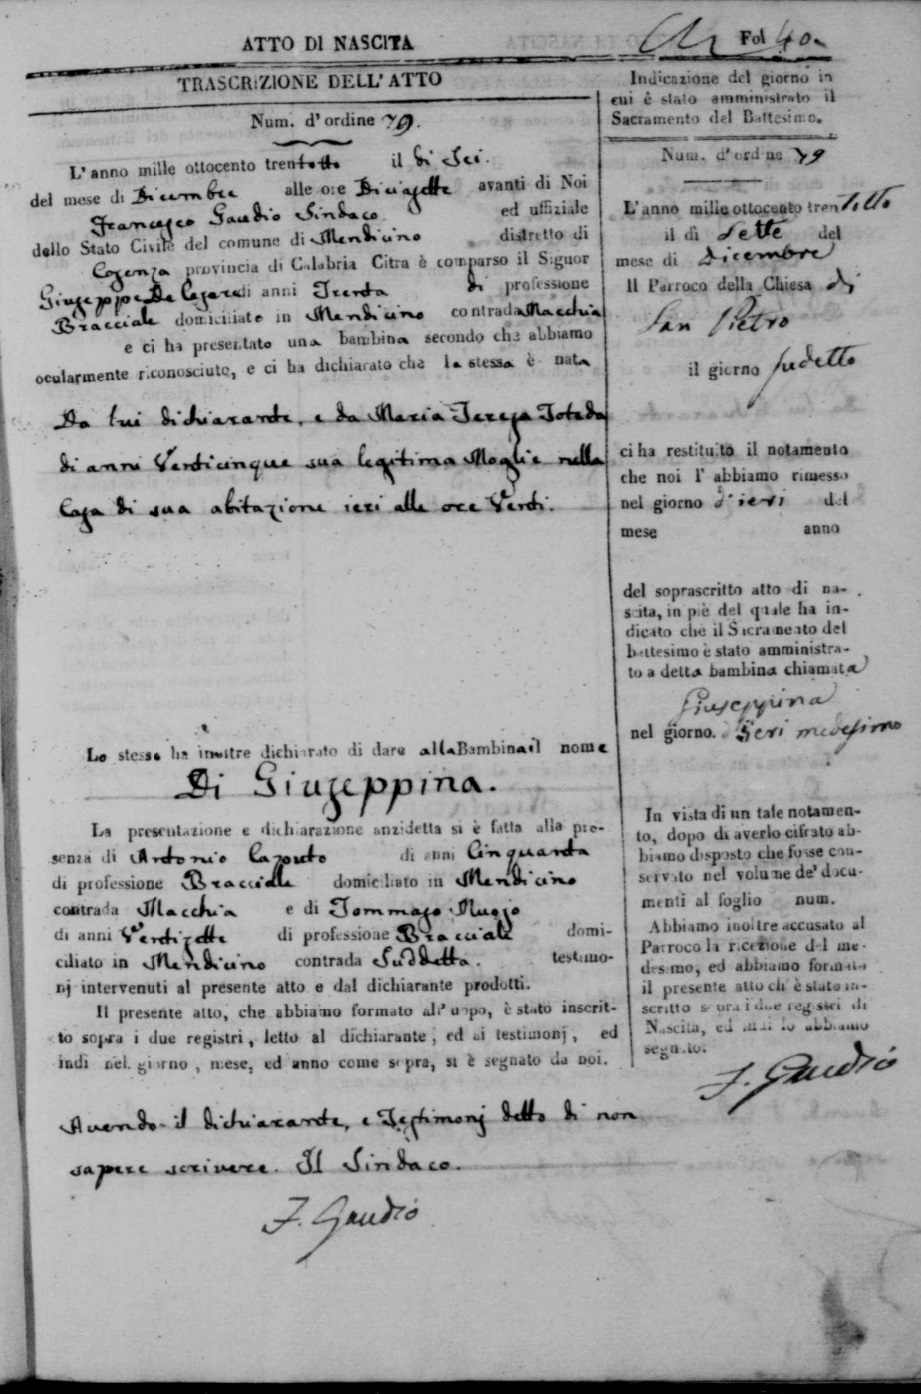 ATTO DI NASCITA
Fol 40.
TRASCRIZIONE DELL'ATTO
Num. d'ordine 79.
L'anno mille ottocento trentotto il di Sei.
del mese di Dicembre alle ore Diciasette avanti di Noi
Francesco Gaudio Sindaco ed uffiziale
dello Stato Civile del comune di Mendicino distretto di
Cosenza provincia di Calabria Citra è comparso il Signor
Giuseppe De Cesare di anni Trenta di professione
Bracciale domiciliato in Mendicino contrada Macchia
e ci ha presentato una bambina secondo che abbiamo
ocularmente riconosciuto, e ci ha dichiarato che la stessa è nata
Da lui dichiarante, e da Maria Teresa Toteda
di anni Venticinque sua legitima Moglie nella
Casa di sua abitazione ieri alle ore Venti.
Lo stesso ha inoltre dichiarato di dare alla Bambina il nome
Di Giuseppina.
La presentazione e dichiarazione anzidetta si è fatta alla pre-
senza di Antonio Caputo di anni Cinquanta
di professione Bracciale domiciliato in Mendicino
contrada Macchia e di Tommaso
di anni Ventisette di professione Bracciale domi-
ciliato in Mendicino contrada Suddetta. testimo-
nj intervenuti al presente atto e dal dichiarante prodotti.
Il presente atto, che abbiamo formato all'uopo, è stato inscrit-
to sopra i due registri, letto al dichiarante, ed ai testimonj, ed
indi nel giorno, mese, ed anno come sopra, si è segnato da noi.
Avendo il dichiarante, e Testimonj detto di non
sapere scrivere. Il Sindaco.
F. Gaudio
Indicazione del giorno in
cui è stato amministrato il
Sacramento del Battesimo.
Num. d'ordine 79
L'anno mille ottocento trentotto
il di Sette del
mese di Dicembre
Il Parroco della Chiesa di
San Pietro
il giorno sudetto
ci ha restituito il notamento
che noi l'abbiamo rimesso
nel giorno d'ieri del
mese anno
del soprascritto atto di na-
scita, in piè del quale ha in-
dicato che il Sacramento del
battesimo è stato amministra-
to a detta bambina chiamata
Giuseppina
nel giorno. d'Ieri medesimo
In vista di un tale notamen-
to, dopo di averlo cifrato ab-
biamo disposto che fosse con-
servato nel volume de' docu-
menti al foglio num.
Abbiamo inoltre accusato al
Parroco la ricezione del me-
desimo, ed abbiamo formato
il presente atto ch'è stato in-
scritto sopra i due registri di
Nascita, ed indi lo abbiamo
segnato.
F. Gaudio